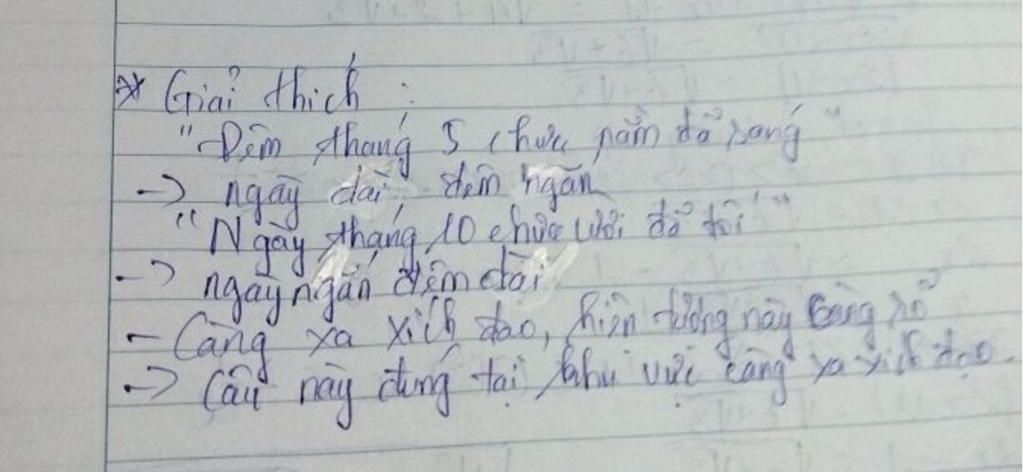 * Giải thích :
"Đêm tháng 5 chưa nằm đã sáng"
-> ngày dài, đêm ngắn
"Ngày tháng 10 chưa cười đã tối"
-> ngày ngắn đêm dài
- Càng xa xích đạo, hiện tượng này càng rõ
-> Câu này đúng tại khu vực càng xa xích đạo.